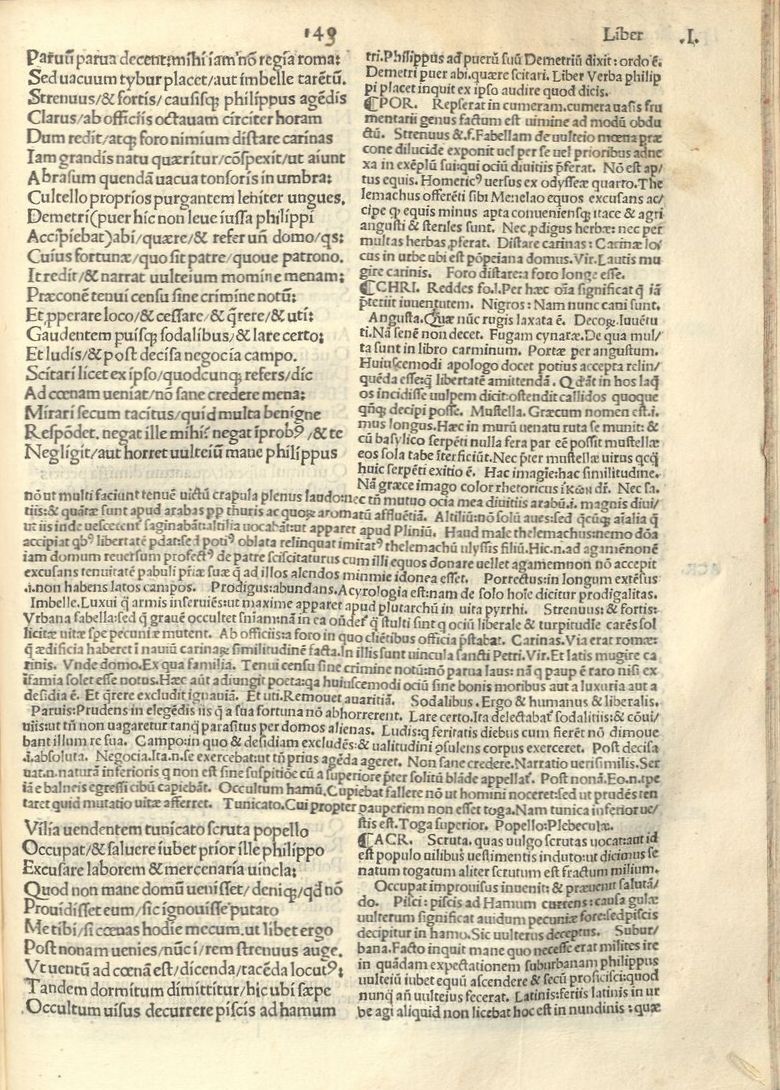 149
Liber .I.
Paruũ parua decent: mihi iam nõ regia roma:
Sed uacuum tybur placet/aut imbelle tarẽtũ.
Strenuus/& fortis/ causisq; philippus agẽdis
Clarus/ab officiis octauam circiter horam
Dum redit/atq; foro nimium distare carinas
Iam grandis natu quæritur/cõspexit/ut aiunt
Abrasum quendã uacua tonsoris in umbra:
Cultello proprios purgantem leniter ungues.
Demetri(puer hic non leue iussa philippi
Accipiebat)abi/quære/& refer unđ domo/qs:
Cuius fortunæ/quo sit patre/quoue patrono.
It redit/& narrat uulteium momine menam:
Præconẽ tenui censu sine crimine notũ:
Et pperare loco/& cessare/& q̃rere/& uti:
Gaudentem puisq; sodalibus/& lare certo:
Et ludis/& post decisa negocia campo.
Scitari licet ex ipso/quodcunq; refers/dic
Ad cœnam ueniat/nõ sane credere mena:
Mirari secum tacitus/quid multa benigne
Respõdet. negat ille mihi? negat ĩprobꝰ/& te
Negligit/aut horret uulteiũ mane philippus
tri.Philippus ad puerũ suũ Demetriũ dixit: ordo ẽ.
Demetri puer abi.quære scitari. Liber Verba philip
pi placet inquit ex ipso audire quod dicis.
¶POR. Repserat in cumeram.cumera uasis fru
mentarii genus factum est uimine ad modũ obdu
ctũ. Strenuus &.f.Fabellam de uulteio mœna præ
cone dilucide exponit uel per se uel prioribus adne
xa in exẽplũ sui:qui ociũ diuitiis p̃ferat. Nõ est ap/
tus equis. Homericꝰ uersus ex odysseæ quarto.The
lemachus offerẽti sibi Menelao equos excusans ac/
cipe q equis minus apta conueniensq; itace & agri
angusti & steriles sunt. Nec pdigus herbæ: nec per
multas herbas pferat. Distare carinas: Carinæ lo/
cus in urbe ubi est põpeiana domus.Vir.Lautis mu
gire carinis. Foro distare:a foro longe esse.
¶CHRI. Reddes fo.l.Per hæc oĩa significat q iã
p̃teriit iuuentutem. Nigros: Nam nunc cani sunt.
Angusta.Quæ nũc rugis laxata ẽ. Decoꝝ.Iuuẽtu
ti.Nã senẽ non decet. Fugam cynaræ.De qua mul/
ta sunt in libro carminum. Portæ per angustum.
Huiuscemodi apologo docet potius accepta relin/
quẽda esse:q̃ libertatẽ amittendã. Qđãt in hos laq̃
os incidisse uulpem dicit:ostendit callidos quoque
qñq; decipi posse. Mustella. Græcum nomen est.i.
mus longus.Hæc in murũ uenatu ruta se munit: &
cũ basylico serpẽti nulla fera par eẽ possit mustellæ
eos sola tabe ĩterficiũt.Nec p̃ter mustellæ uirus qcq̃
huic serpẽti exitio ẽ. Hac imagiẽ:hac similitudine.
Nã græce imago color rhetoricus ικων dr̃. Nec sa.
nõ ut multi faciunt tenuẽ uictũ crapula plenus laudo:nec tñ mutuo ocia mea diuitiis arabũ.i. magnis diui/
tiis:& quãtæ sunt apud arabas pp thuris ac quoꝝ aromatũ affluẽtiã. Altiliũ:nõ solũ aues:sed q̃cũq; aĩalia q̃
ut iis inde uescerent̃ saginabãt:altilia uocabãt:ut apparet apud Pliniũ. Haud male thelemachus:nemo dõa
accipiat qbꝰ libertatẽ pdat:sed potiꝰ oblata relinquat imitatꝰ thelemachũ ulyssis filiũ.Hic.n.ad agamẽnonẽ
iam domum reuersum profectꝰ de patre sciscitaturus cum illi equos donare uellet agamemnon nõ accepit
excusans tenuitatẽ pabuli pr̃iæ suæ q̃ ad illos alendos minmie idonea esset. Porrectus:in longum extẽsus
.i.non habens latos campos. Prodigus:abundans.Acyrologia est:nam de solo hoĩe dicitur prodigalitas.
Imbelle.Luxui q̃ armis inseruiẽs:ut maxime apparet apud plutarchũ in uita pyrrhi. Strenuus: & fortis:
Vrbana fabella:sed q̃ grauẽ occultet sñiam:nã in ea oñdet̃ q̃ stulti sint q ociũ liberale & turpitudĩe carẽs sol
licitæ uitæ spe pecuniæ mutent. Ab officiis:a foro in quo cliẽtibus officia p̃stabat. Carinas.Via erat romæ:
q̃ ædificia haberet ĩ nauiũ carinaꝝ similitudinẽ facta.In illis sunt uincula sancti Petri.Vir.Et latis mugire ca
rinis. Vnde domo.Ex qua familia. Tenui censu sine crimine notũ:nõ parua laus: nã q paup ẽ raro nisi ex
ĩfamia solet esse notus.Hæc aũt adiungit poeta:qa huiuscemodi ociũ sine bonis moribus aut a luxuria aut a
desidia ẽ. Et q̃rere excludit ignauiã. Et uti.Remouet auaritiã. Sodalibus.Ergo & humanus & liberalis.
Paruis:Prudens in elegẽdis iis q̃ a sua fortuna nõ abhorrerent. Lare certo.Ita delectabat̃ sodalitiis:& cõui/
uiis:ut tñ non uagaretur tanq̃ parasitus per domos alienas. Ludis:q feritatis diebus cum fierẽt nõ dimoue
bant illum re sua. Campo:in quo & desidiam excludẽs:& ualitudini p̃sulens corpus exerceret. Post decisa
.i.absoluta. Negocia.Ita.n.se exercebat:ut tñ prius agẽda ageret. Non sane credere.Narratio uerisimilis.Ser
uat.n.naturã inferioris q non est sine suspitiõe cũ a superiore p̃ter solitũ blãde appellat̃. Post nonã.Eo.n.tpe
iã e balneis egressi cibũ capiebãt. Occultum hamũ.Cupiebat fallere nõ ut homini noceret:sed ut prudẽs ten
taret quid mutatio uitæ afferret. Tunicato.Cui propter pauperiem non esset toga.Nam tunica inferior ue/
Vilia uendentem tunicato scruta popello
Occupat/& saluere iubet prior ille philippo
Excusare laborem & mercenaria uincla:
Quod non mane domũ uenisset/deniq;/qđ nõ
Prouidisset eum/sic ignouisse putato
Me tibi/si cœnas hodie mecum.ut libet ergo
Post nonam uenies/nũc i/rem strenuus auge.
Vt uentũ ad cœnã est/dicenda/tacẽda locutꝰ:
Tandem dormitum dimittitur/hic ubi sæpe
Occultum uisus decurrere piscis ad hamum
stis est.Toga superior. Popello:Plebeculæ.
¶ACR. Scruta.quas uulgo scrutas uocat:aut id
est populo uilibus uestimentis induto:ut dicimus se
natum togatum aliter scrutum est fractum milium.
Occupat improuisus inuenit:& præuenit salutã/
do. Pisci: piscis ad Hamum currens: causa gulæ
uulterum significat auidum pecuniæ fore:sed piscis
decipitur in hamo.Sic uulterus deceptus. Subur/
bana.Facto inquit mane quo necesse erat milites ire
in quãdam expectationem suburbanam philippus
uulteiũ iubet equũ ascendere & secũ proficisci:quod
nunq̃ añ uulteius fecerat. Latinis:feriis latinis in ur
be agi aliquid non licebat hoc est in nundinis : quæ